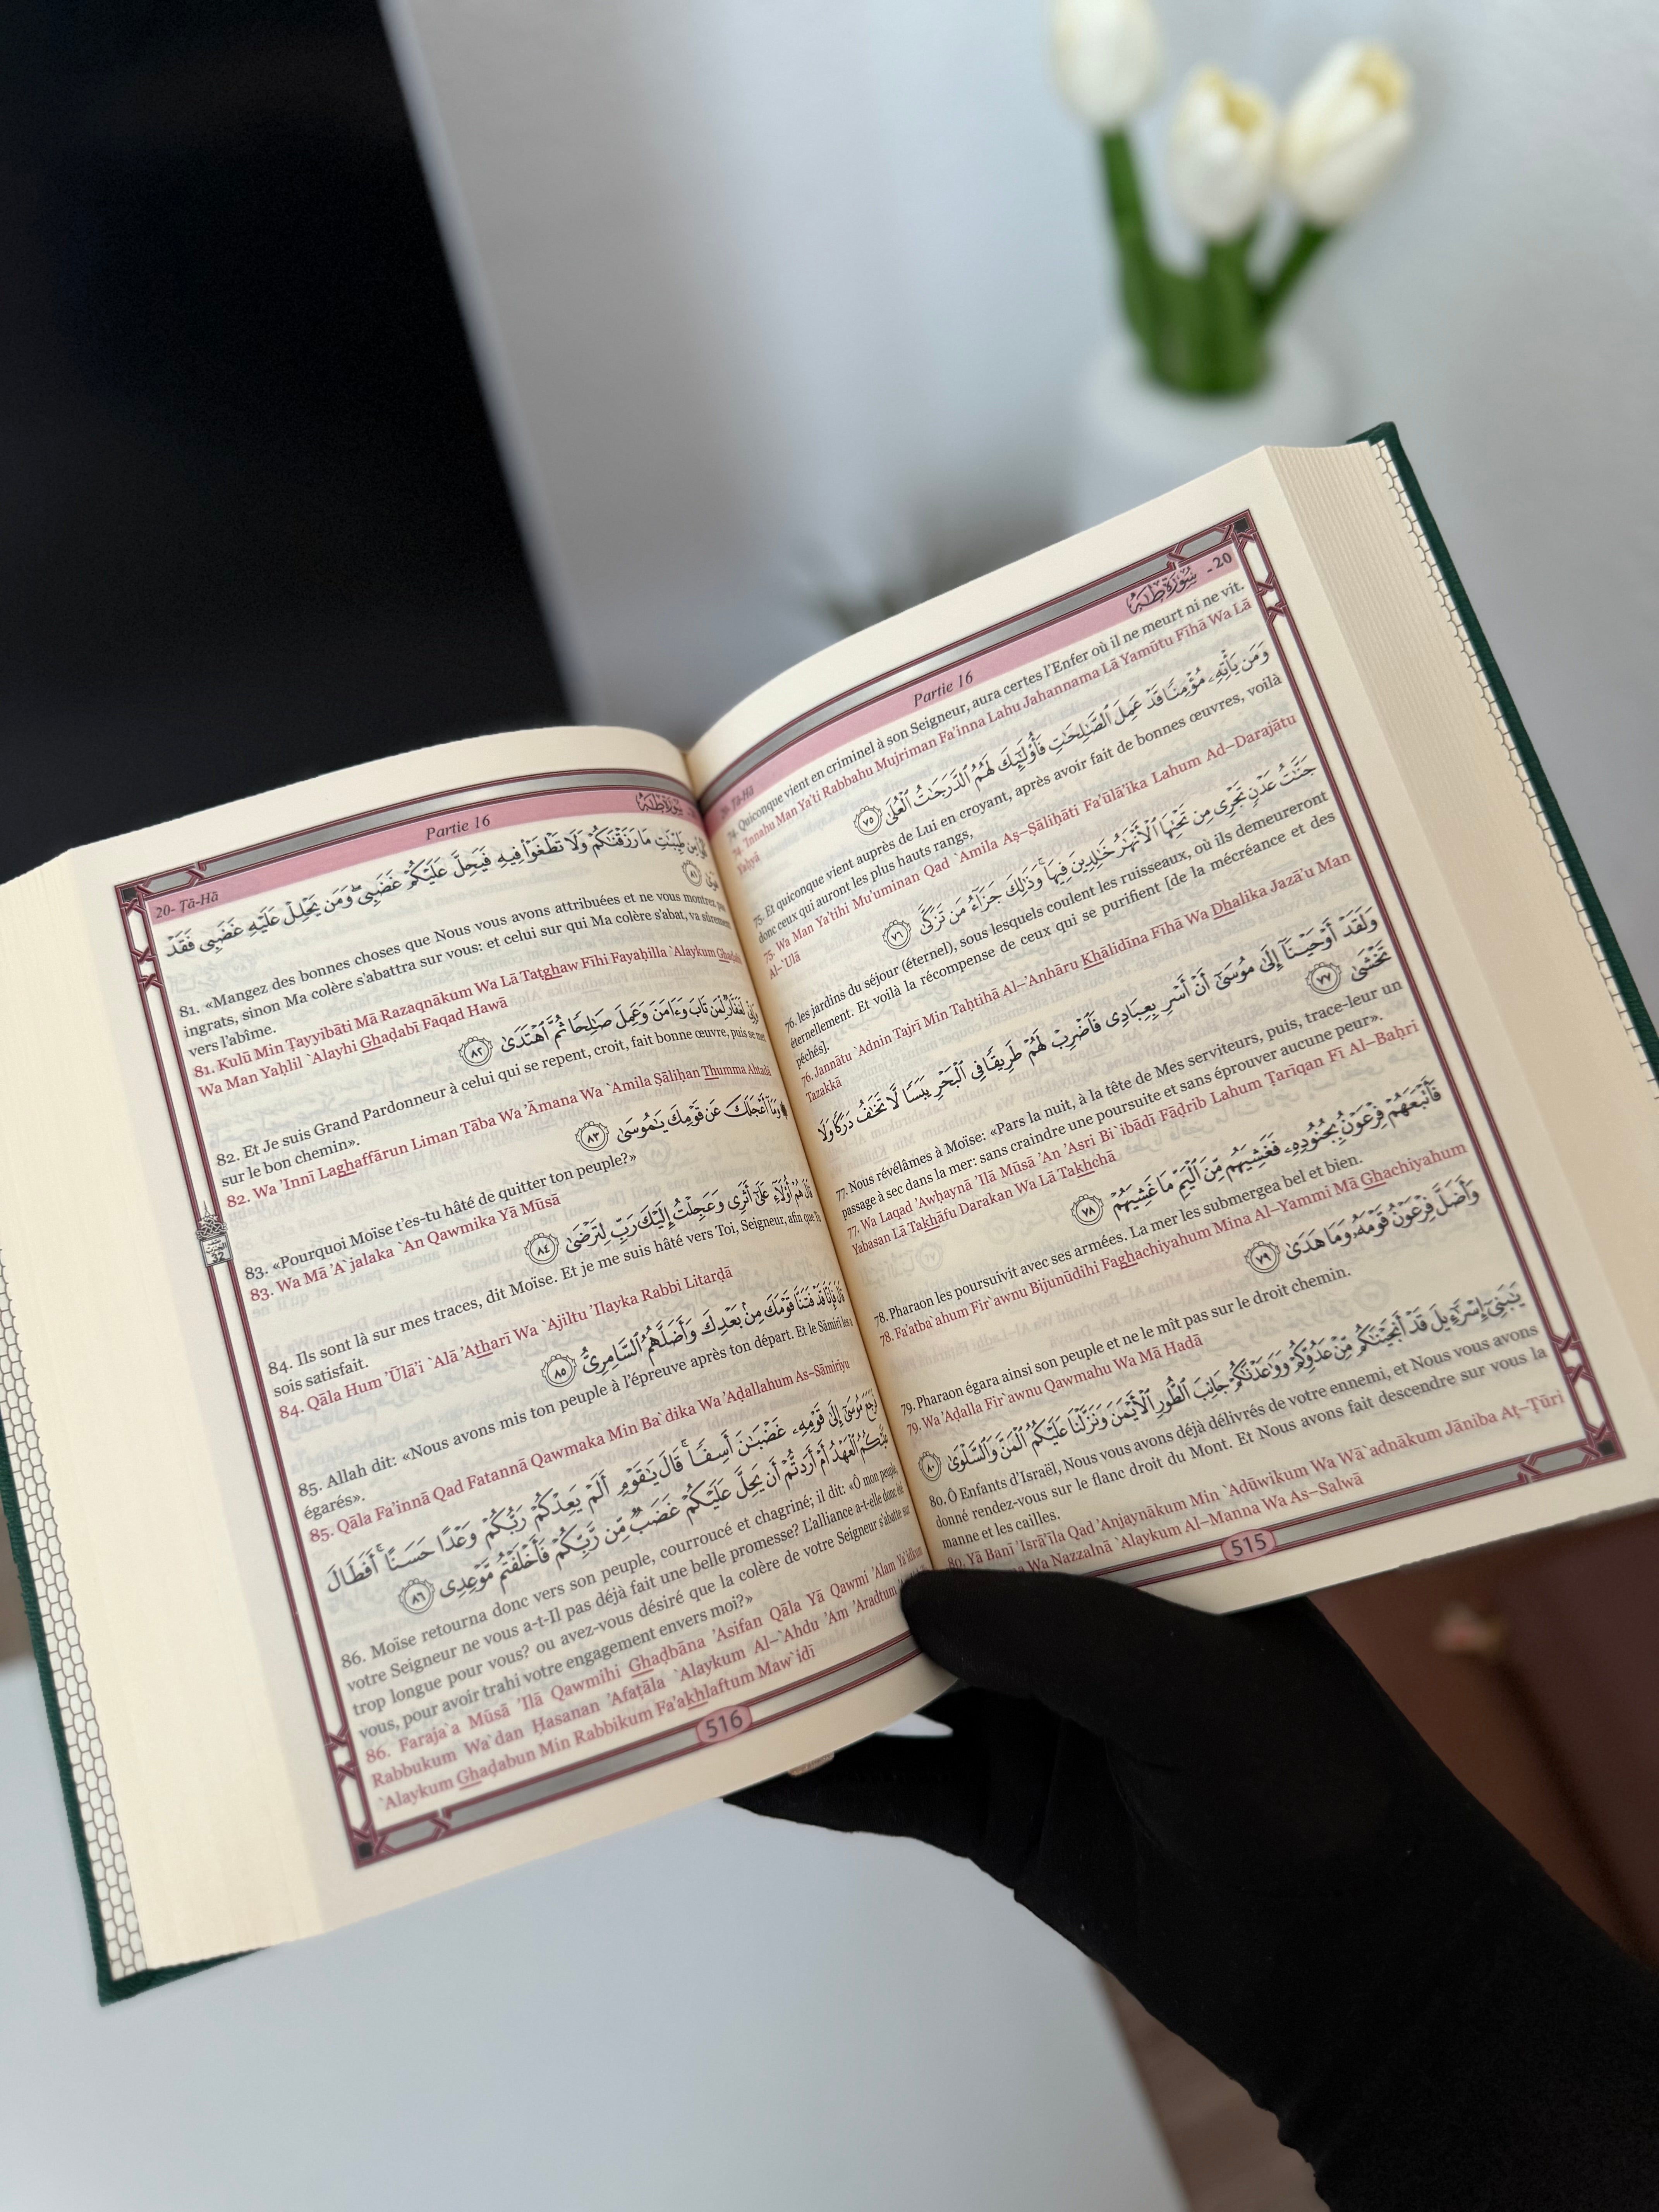 20- Ṭā-Hā
Partie 16
سُورَةُ طه
- 20
74- Quiconque vient en criminel à son Seigneur, aura certes l'Enfer où il ne meurt ni ne vit.
74- 'Innahu Man Ya'ti Rabbahu Mujriman Fa'inna Lahu Jahannama Lā Yamūtu Fīhā Wa Lā
Yaḥyá
وَمَن يَأۡتِهِۦ مُؤۡمِنٗا قَدۡ عَمِلَ ٱلصَّٰلِحَٰتِ فَأُوْلَٰٓئِكَ لَهُمُ ٱلدَّرَجَٰتُ ٱلۡعُلَىٰ ٧٥
75- Et quiconque vient auprès de Lui en croyant, après avoir fait de bonnes œuvres, voilà
donc ceux qui auront les plus hauts rangs,
75- Wa Man Ya'tihi Mu'uminan Qad `Amila Aş-Şāliḥāti Fa'ūlā'ika Lahum Ad-Darajātu
Al-`Ulā
جَنَّٰتُ عَدۡنٖ تَجۡرِي مِن تَحۡتِهَا ٱلۡأَنۡهَٰرُ خَٰلِدِينَ فِيهَاۚ وَذَٰلِكَ جَزَآءُ مَن تَزَكَّىٰ ٧٦
76. les jardins du séjour (éternel), sous lesquels coulent les ruisseaux, où ils demeureront
éternellement. Et voilà la récompense de ceux qui se purifient [de la mécréance et des
péchés].
76. Jannātu `Adnin Tajrī Min Taḥtihā Al-'Anhāru Khālidīna Fīhā Wa Dhalika Jazā'u Man
Tazakká
وَلَقَدۡ أَوۡحَيۡنَآ إِلَىٰ مُوسَىٰٓ أَنۡ أَسۡرِ بِعِبَادِي فَٱضۡرِبۡ لَهُمۡ طَرِيقٗا فِي ٱلۡبَحۡرِ يَبَسٗا لَّا تَخَٰفُ دَرَكٗا وَلَا
تَخۡشَىٰ ٧٧
77. Nous révélâmes à Moïse: «Pars la nuit, à la tête de Mes serviteurs, puis, trace-leur un
passage à sec dans la mer: sans craindre une poursuite et sans éprouver aucune peur».
77. Wa Laqad 'Awḥaynā 'Ilā Mūsā 'An 'Asri Bi`ibādī Fāḍrib Lahum Ṭarīqan Fī Al-Baḥri
Yabasan Lā Takhāfu Darakan Wa Lā Takhchā
فَأَتۡبَعَهُمۡ فِرۡعَوۡنُ بِجُنُودِهِۦ فَغَشِيَهُم مِّنَ ٱلۡيَمِّ مَا غَشِيَهُمۡ ٧٨
78. Pharaon les poursuivit avec ses armées. La mer les submergea bel et bien.
78. Fa'atba`ahum Fir`awnu Bijunūdihi Faghachiyahum Mina Al-Yammi Mā Ghachiyahum
وَأَضَلَّ فِرۡعَوۡنُ قَوۡمَهُۥ وَمَا هَدَىٰ ٧٩
79. Pharaon égara ainsi son peuple et ne le mît pas sur le droit chemin.
79. Wa 'Aḍalla Fir`awnu Qawmahu Wa Mā Hadā
يَٰبَنِيٓ إِسۡرَٰٓءِيلَ قَدۡ أَنجَيۡنَٰكُم مِّنۡ عَدُوِّكُمۡ وَوَٰعَدۡنَٰكُمۡ جَانِبَ ٱلطُّورِ ٱلۡأَيۡمَنَ وَنَزَّلۡنَا عَلَيۡكُمُ ٱلۡمَنَّ وَٱلسَّلۡوَىٰ ٨٠
80. Ô Enfants d'Israël, Nous vous avons déjà délivrés de votre ennemi, et Nous vous avons
donné rendez-vous sur le flanc droit du Mont. Et Nous avons fait descendre sur vous la
manne et les cailles.
80. Yā Banī 'Isrā'īla Qad 'Anjaynākum Min `Adūwikum Wa Wā`adnākum Jāniba Aţ-Ţūri
Wa Nazzalnā `Alaykum Al-Manna Wa As-Salwā
515
20- Ṭā-Hā
Partie 16
سُورَةُ طه
مِن طَيِّبَٰتِ مَا رَزَقۡنَٰكُمۡ وَلَا تَطۡغَوۡاْ فِيهِ فَيَحِلَّ عَلَيۡكُمۡ غَضَبِيۖ وَمَن يَحۡلِلۡ عَلَيۡهِ غَضَبِي فَقَدۡ
٨١
81. «Mangez des bonnes choses que Nous vous avons attribuées et ne vous montrez pas
ingrats, sinon Ma colère s'abattra sur vous: et celui sur qui Ma colère s'abat, va sûrement
vers l'abîme.
81. Kulū Min Ṭayyibāti Mā Razaqnākum Wa Lā Taṭghaw Fīhi Fayaḥilla `Alaykum Ghaḍabī
Wa Man Yaḥlil `Alayhi Ghaḍabī Faqad Hawā
وَإِنِّي لَغَفَّارٞ لِّمَن تَابَ وَءَامَنَ وَعَمِلَ صَٰلِحٗا ثُمَّ ٱهۡتَدَىٰ ٨٢
82. Et Je suis Grand Pardonneur à celui qui se repent, croit, fait bonne œuvre, puis se met
sur le bon chemin».
82. Wa 'Innī Laghaffārun Liman Tāba Wa 'Āmana Wa `Amila Ṣāliḥan Thumma Ahtadā
وَمَآ أَعۡجَلَكَ عَن قَوۡمِكَ يَٰمُوسَىٰ ٨٣
83. «Pourquoi Moïse t'es-tu hâté de quitter ton peuple?»
83. Wa Mā 'A`jalaka `An Qawmika Yā Mūsā
قَالَ هُمۡ أُوْلَآءِ عَلَىٰٓ أَثَرِي وَعَجِلۡتُ إِلَيۡكَ رَبِّ لِتَرۡضَىٰ ٨٤
84. Ils sont là sur mes traces, dit Moïse. Et je me suis hâté vers Toi, Seigneur, afin que Tu
sois satisfait.
84. Qāla Hum 'Ūlā'i `Alā 'Atharī Wa `Ajiltu 'Ilayka Rabbi Litarḍā
قَالَ فَإِنَّا قَدۡ فَتَنَّا قَوۡمَكَ مِنۢ بَعۡدِكَ وَأَضَلَّهُمُ ٱلسَّامِرِيُّ ٨٥
85. Allah dit: «Nous avons mis ton peuple à l'épreuve après ton départ. Et le Sāmirī les a
égarés».
85. Qāla Fa'innā Qad Fatannā Qawmaka Min Ba`dika Wa 'Aḍallahum As-Sāmiriyu
فَرَجَعَ مُوسَىٰٓ إِلَىٰ قَوۡمِهِۦ غَضۡبَٰنَ أَسِفٗاۚ قَالَ يَٰقَوۡمِ أَلَمۡ يَعِدۡكُمۡ رَبُّكُمۡ وَعۡدًا حَسَنًاۚ أَفَطَالَ
عَلَيۡكُمُ ٱلۡعَهۡدُ أَمۡ أَرَدتُّمۡ أَن يَحِلَّ عَلَيۡكُمۡ غَضَبٞ مِّن رَّبِّكُمۡ فَأَخۡلَفۡتُم مَّوۡعِدِي ٨٦
86. Moïse retourna donc vers son peuple, courroucé et chagriné; il dit: «Ô mon peuple,
votre Seigneur ne vous a-t-Il pas déjà fait une belle promesse? L'alliance a-t-elle donc été
trop longue pour vous? ou avez-vous désiré que la colère de votre Seigneur s'abatte sur
vous, pour avoir trahi votre engagement envers moi?»
86. Faraja`a Mūsā 'Ilā Qawmihi Ghaḍbāna 'Asifan Qāla Yā Qawmi 'Alam Ya`idkum
Rabbukum Wa`dan Ḥasanan 'Afaṭāla `Alaykum Al-`Ahdu 'Am 'Aradtum
`Alaykum Ghaḍabun Min Rabbikum Fa'akhlaftum Maw`idī
32
516